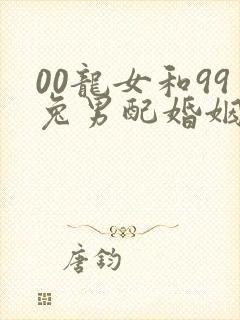 00龍女和99
兔男配婚姻
唐鈞